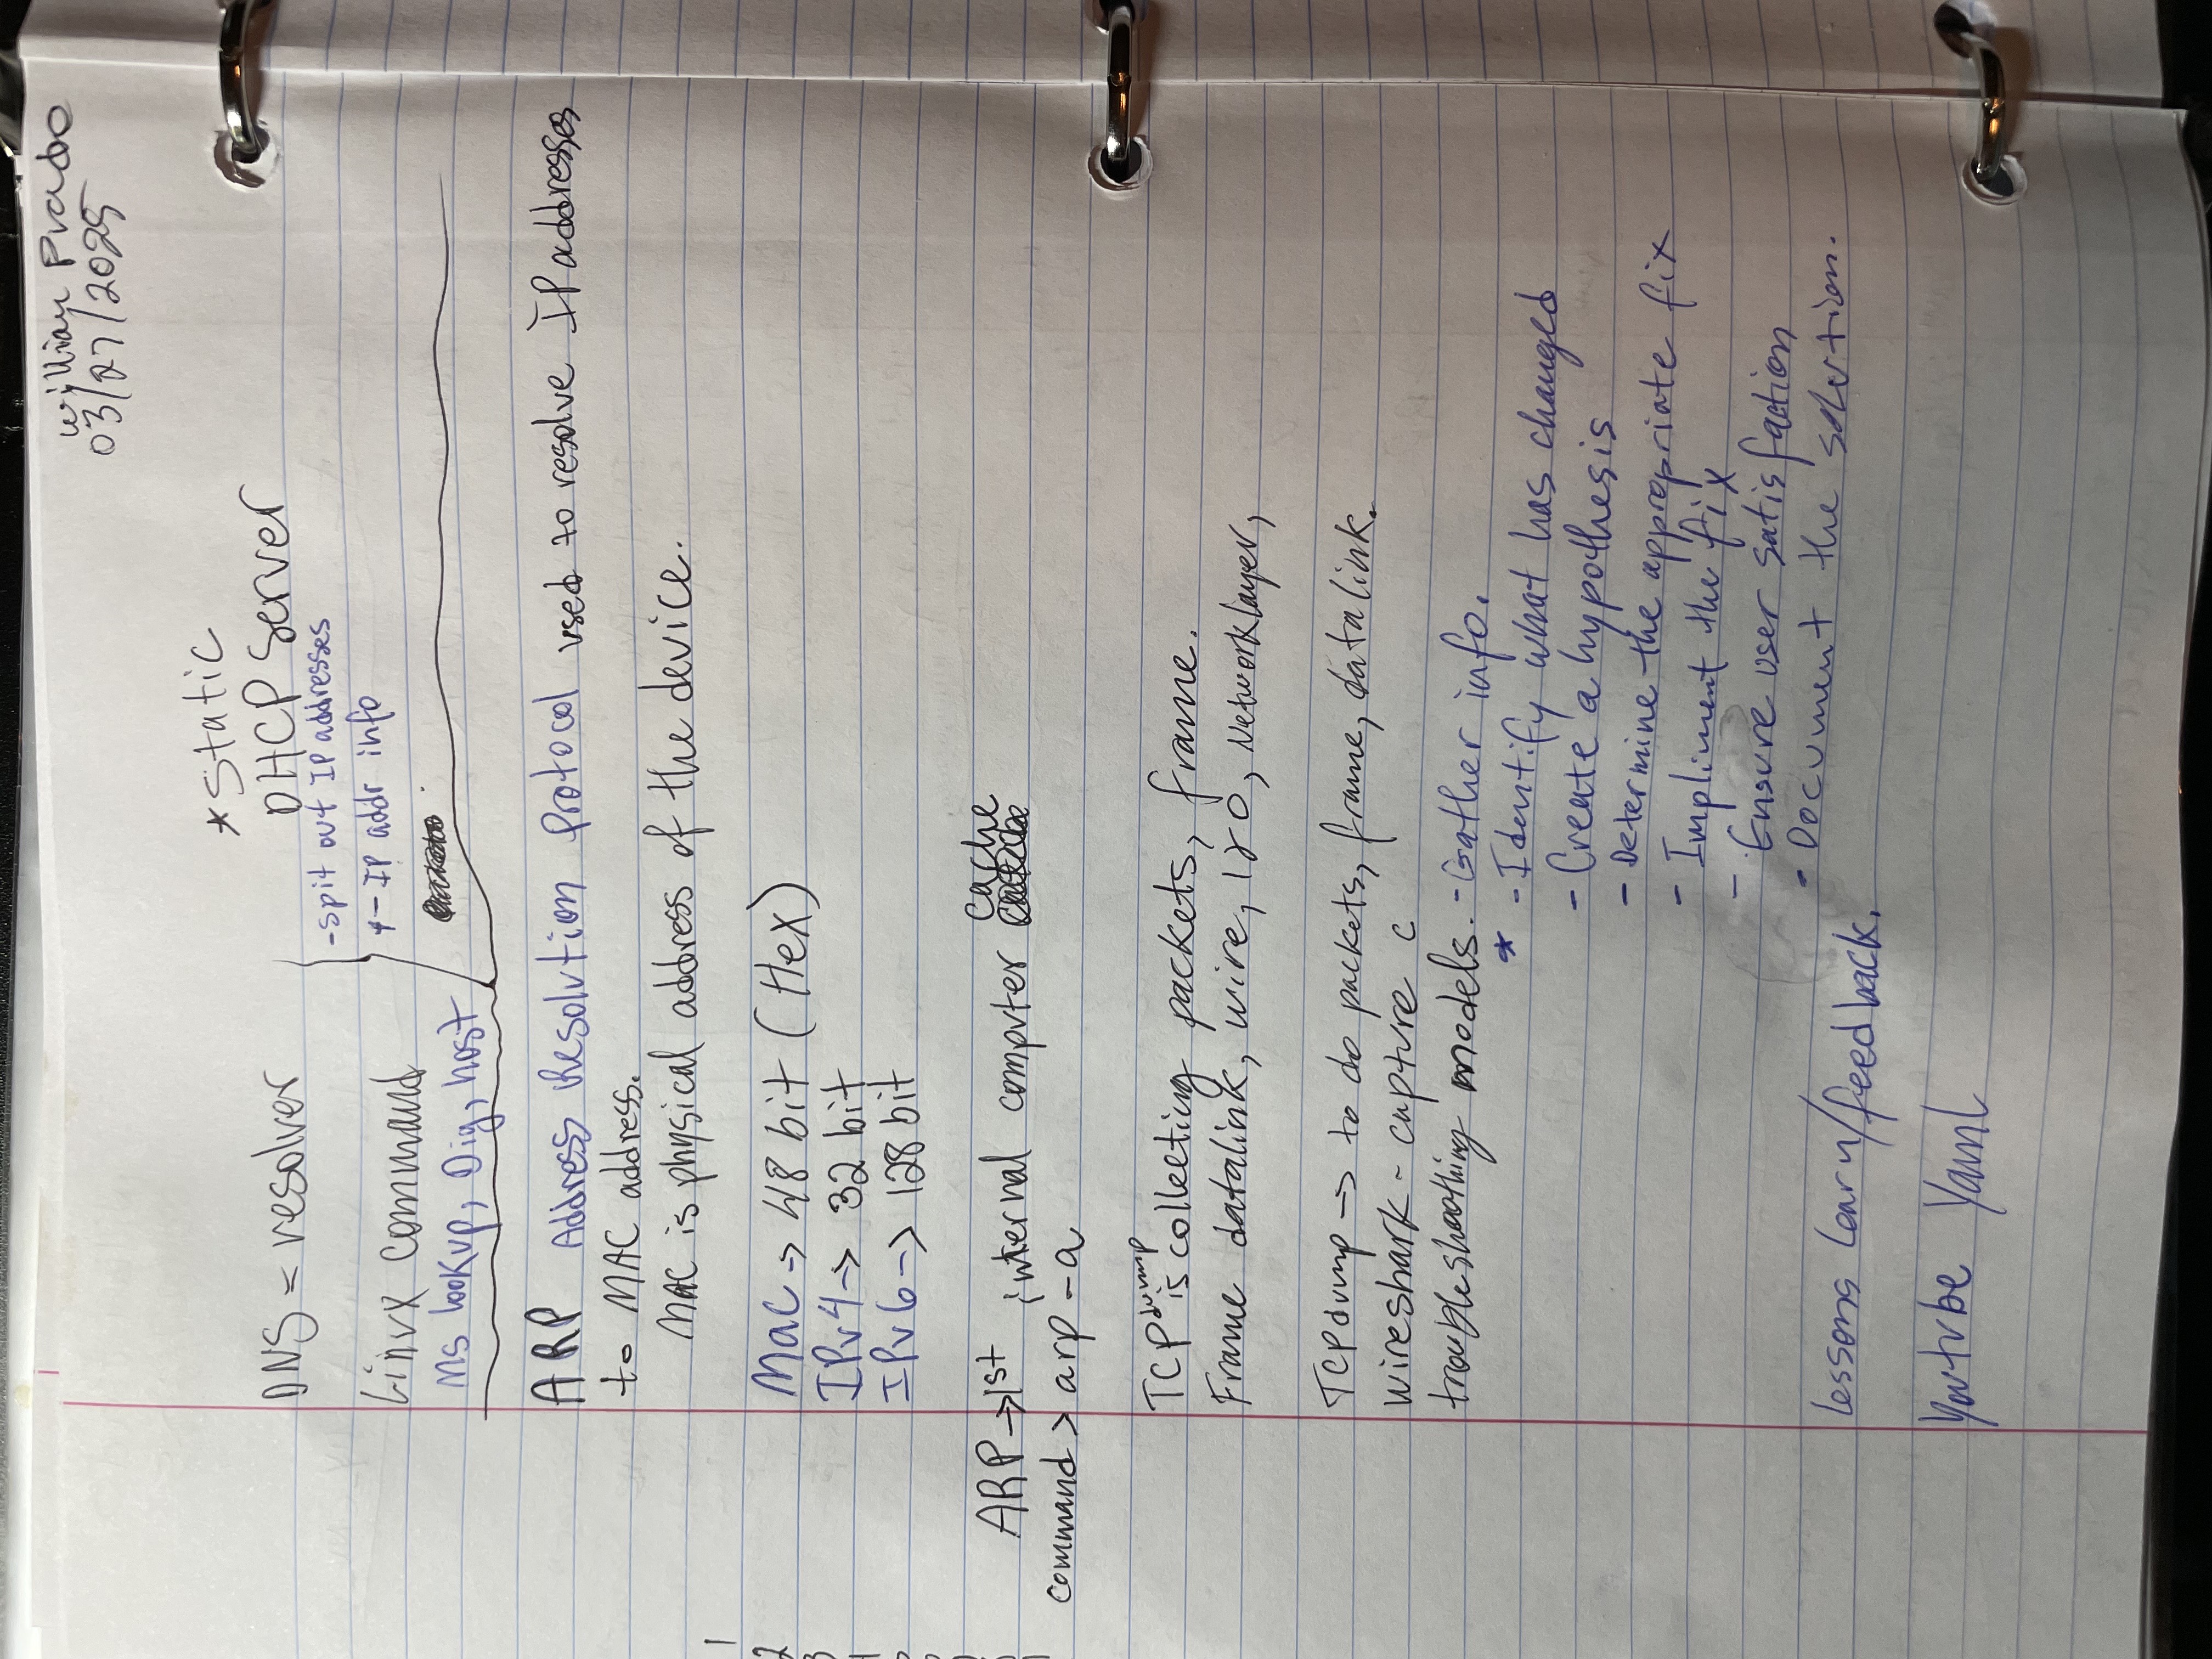 Willian Prado
03/27/2025
* Static
DHCP Server
- spit out IP addresses
- IP addr info
DNS = resolver
Linux command
Ns lookup, Dig, host
ARP Address Resolution Protocol used to resolve IP addresses
to MAC address.
MAC is physical address of the device.
1
2
3
Mac -> 48 bit (Hex)
IPv4 -> 32 bit
IPv6 -> 128 bit
ARP -> 1st internal computer cache
command > arp -a
TCP dump is collecting packets, frame.
Frame datalink, wire, 1 & 0, Network layer,
TCP dump -> to do packets, frame, datalink.
wireshark - capture c
troubleshoothing models. - Gather info.
* - Identify what has changed
- Create a hypothesis
- Determine the appropriate fix
- Impliment the fix
- Ensure user satisfaction
- Document the solution.
lessons learn/feedback.
Youtube Yaml